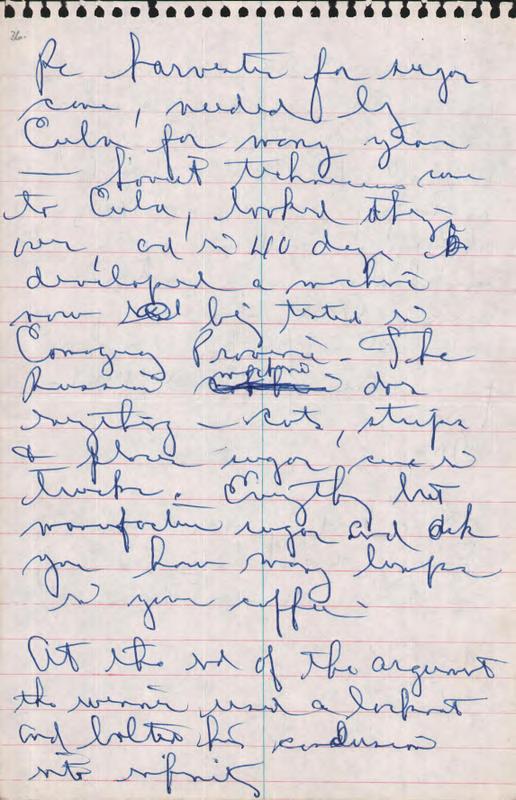 26.
Re harvester for sugar
cane, needed by
Cuba for many years
— Soviet technicians came
to Cuba, looked things
over, and in 40 days
developed a machine
now being tested in
Camaguey Province - The
Russian machine does
everything — cuts, strips
& places sugar cane in
trucks. Everything but
manufacture sugar and ask
you how many lumps
in your coffee -
At the end of the argument
the winner used a locknut
and bolted his conclusion
into infinity